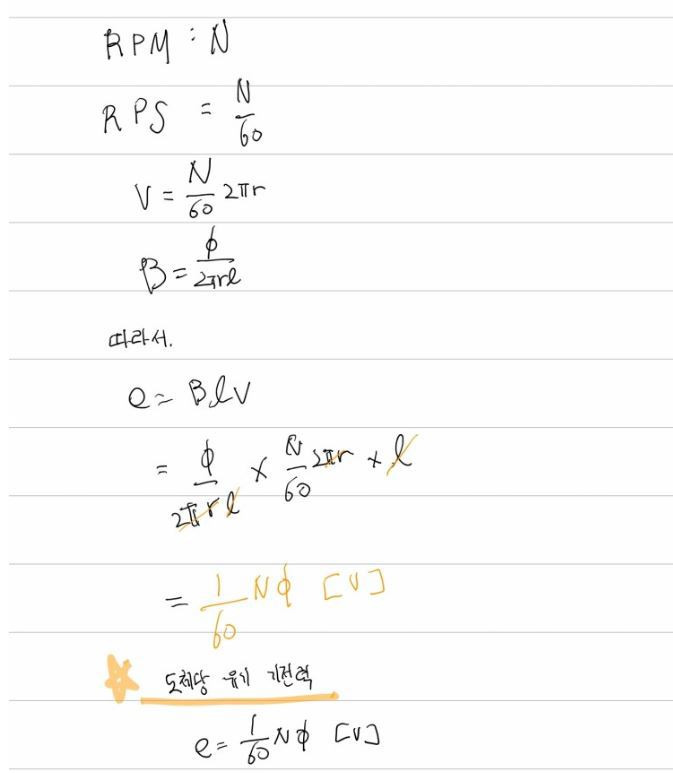 RPM : N
RPS = N/60
V = N/60 2πr
B = ϕ/2πrl
따라서.
e = Blv
= ϕ/2πrl × N/60 2πr × l
= 1/60 Nϕ [V]
도체당 유기 기전력
e = 1/60 Nϕ [V]